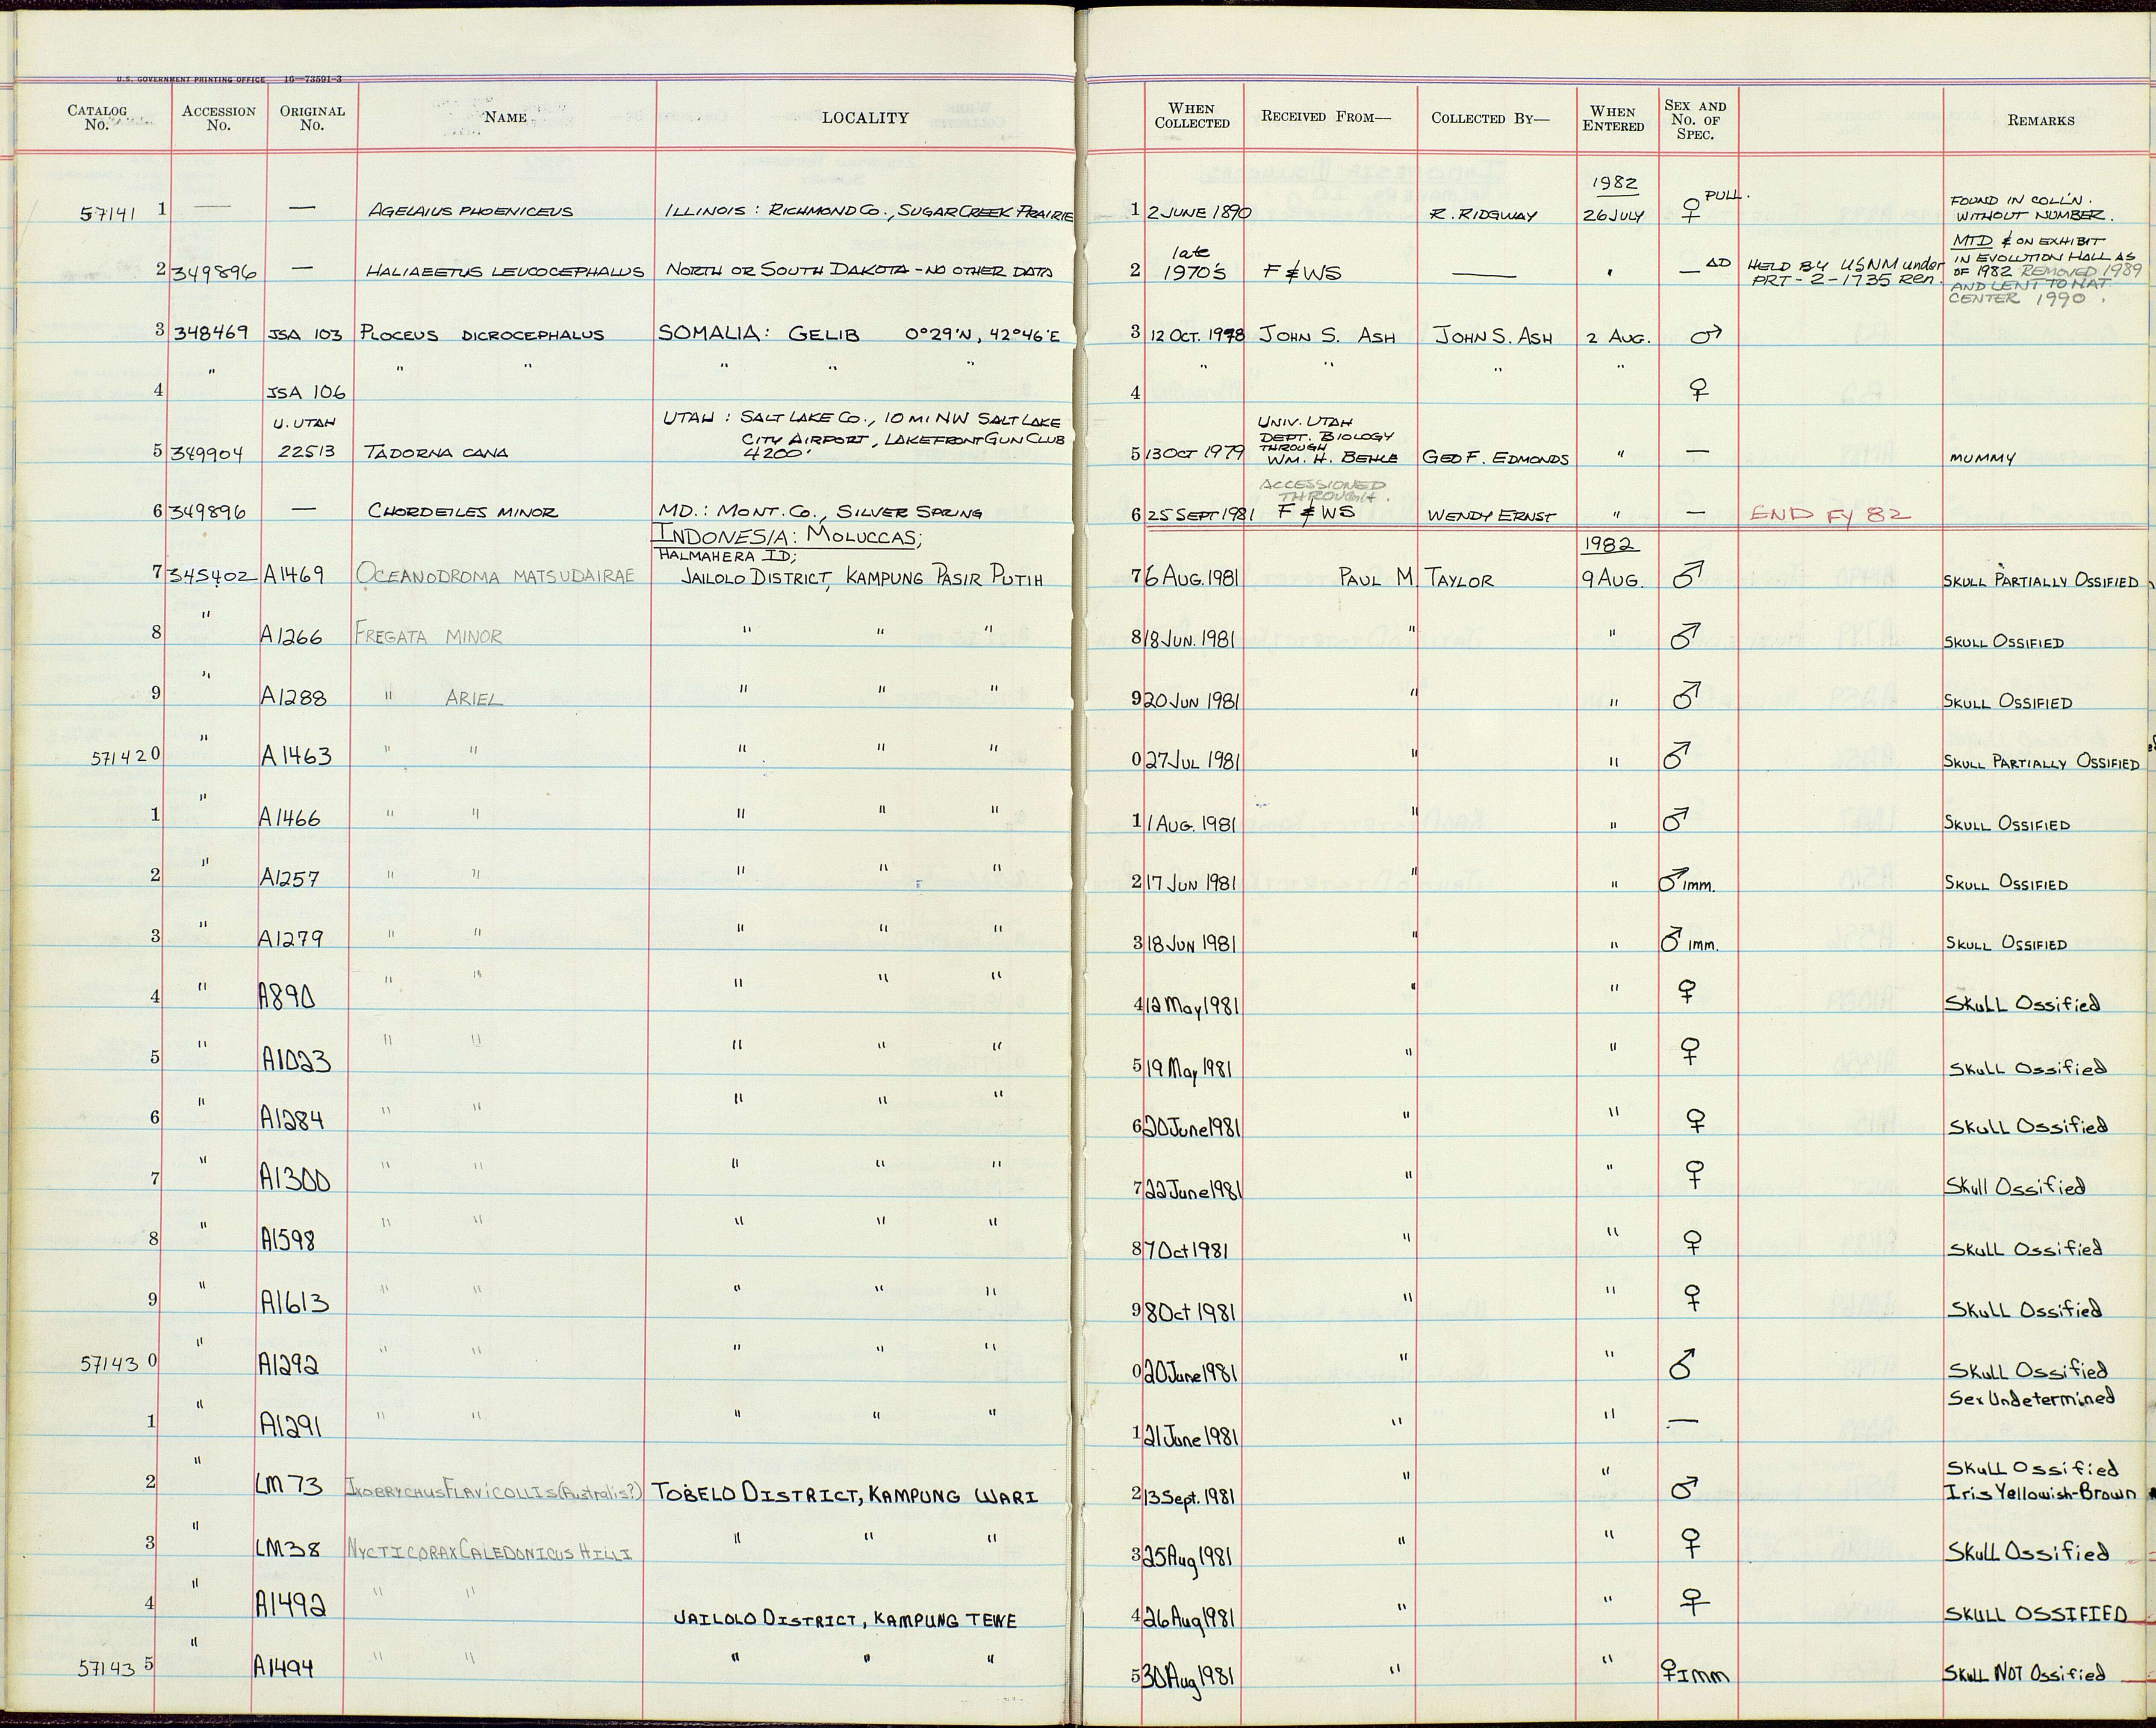 U.S. GOVERNMENT PRINTING OFFICE 16—73591-3
CATALOG No. ACCESSION No. ORIGINAL No. NAME LOCALITY WHEN COLLECTED RECEIVED FROM— COLLECTED BY— WHEN ENTERED SEX AND No. OF SPEC. REMARKS
1982
57141 1 — — AGELAIUS PHOENICEUS ILLINOIS: RICHMOND CO., SUGAR CREEK PRAIRIE 1 2 JUNE 1890 R. RIDGWAY 26 JULY ♀ PULL. FOUND IN COLL'N. WITHOUT NUMBER.
2 349896 — HALIAEETUS LEUCOCEPHALUS NORTH OR SOUTH DAKOTA - NO OTHER DATA 2 late 1970'S F & WS — " — AD HELD BY USNM under PRT-2-1735 Ren. MTD & ON EXHIBIT IN EVOLUTION HALL AS OF 1982 REMOVED 1989 AND LENT TO NAT. CENTER 1990.
3 348469 JSA 103 PLOCEUS DICROCEPHALUS SOMALIA: GELIB 0°29'N, 42°46'E 3 12 OCT. 1978 JOHN S. ASH JOHN S. ASH 2 AUG. ♂
4 " JSA 106 " " " " " 4 " " " " ♀
5 349904 U. UTAH 22513 TADORNA CANA UTAH: SALT LAKE CO., 10 MI NW SALT LAKE CITY AIRPORT, LAKEFRONT GUN CLUB 4200' 5 13 OCT 1979 UNIV. UTAH DEPT. BIOLOGY THROUGH WM. H. BEHLE GEO F. EDMONDS " — MUMMY
6 349896 — CHORDEILES MINOR MD.: MONT. CO., SILVER SPRING 6 25 SEPT 1981 ACCESSIONED THROUGH. F & WS WENDY ERNST " — END FY 82
INDONESIA: MOLUCCAS; 1982
HALMAHERA ID;
7 345402 A1469 OCEANODROMA MATSUDAIRAE JAILOLO DISTRICT, KAMPUNG PASIR PUTIH 7 6 AUG. 1981 PAUL M. TAYLOR 9 AUG. ♂ SKULL PARTIALLY OSSIFIED
8 " A1266 FREGATA MINOR " " " 8 18 JUN. 1981 " " ♂ SKULL OSSIFIED
9 " A1288 " ARIEL " " " 9 20 JUN 1981 " " ♂ SKULL OSSIFIED
57142 0 " A1463 " " " " " 0 27 JUL 1981 " " ♂ SKULL PARTIALLY OSSIFIED
1 " A1466 " " " " " 1 1 AUG. 1981 " " ♂ SKULL OSSIFIED
2 " A1257 " " " " " 2 17 JUN 1981 " " ♂ imm. SKULL OSSIFIED
3 " A1279 " " " " " 3 18 JUN 1981 " " ♂ imm. SKULL OSSIFIED
4 " A890 " " " " " 4 12 May 1981 " " ♀ Skull Ossified
5 " A1023 " " " " " 5 19 May 1981 " " ♀ Skull Ossified
6 " A1284 " " " " " 6 20 June 1981 " " ♀ Skull Ossified
7 " A1300 " " " " " 7 22 June 1981 " " ♀ Skull Ossified
8 " A1598 " " " " " 8 7 Oct 1981 " " ♀ Skull Ossified
9 " A1613 " " " " " 9 8 Oct 1981 " " ♀ Skull Ossified
57143 0 " A1292 " " " " " 0 20 June 1981 " " ♂ Skull Ossified
1 " A1291 " " " " " 1 21 June 1981 " " — Sex Undetermined
2 " LM 73 IXOBRYCHUS FLAVICOLLIS (Australis?) TOBELO DISTRICT, KAMPUNG WARI 2 13 Sept. 1981 " " ♂ Skull Ossified Iris Yellowish-Brown
3 " LM38 NYCTICORAX CALEDONICUS HILLI " " " 3 25 Aug 1981 " " ♀ Skull Ossified
4 " A1492 " " JAILOLO DISTRICT, KAMPUNG TEWE 4 26 Aug 1981 " " ♀ SKULL OSSIFIED
57143 5 " A1494 " " " " " 5 30 Aug 1981 " " ♀ Imm Skull NOT Ossified